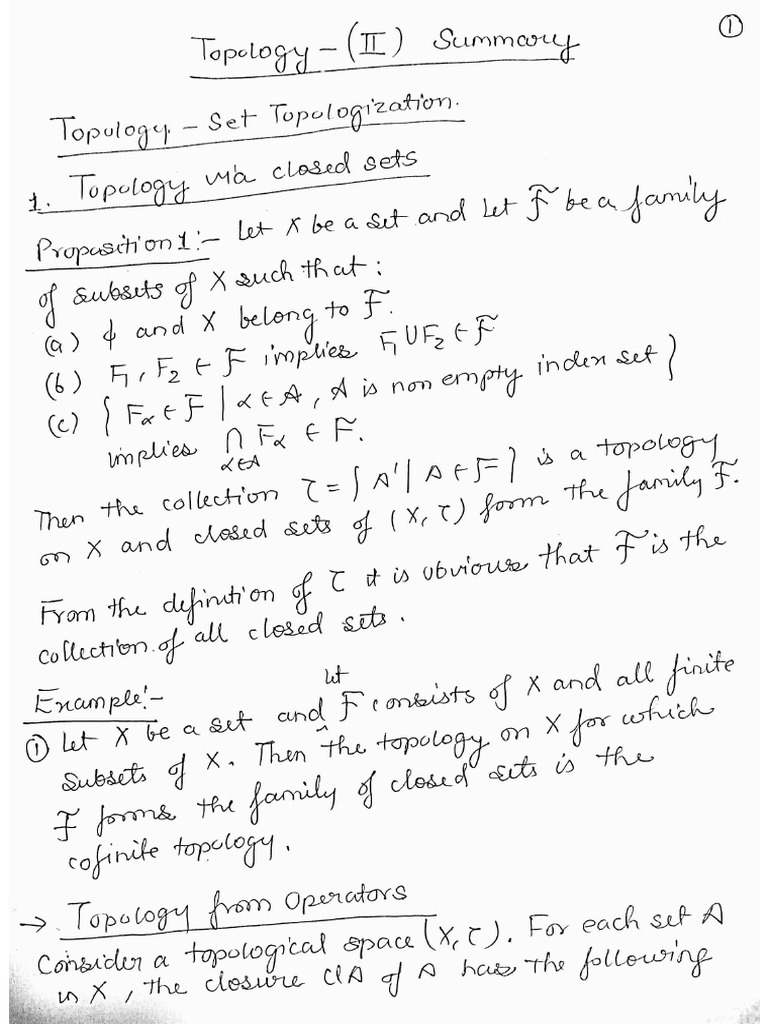 ①
Topology – (II) Summary
Topology – Set Topologization.
1. Topology via closed sets
Proposition 1:- Let X be a set and let F be a family
of subsets of X such that :
(a) ϕ and X belong to F.
(b) F₁, F₂ ∈ F implies F₁ ∪ F₂ ∈ F
(c) { Fα ∈ F | α ∈ A, A is non empty index set }
implies ∩ Fα ∈ F.
α∈A
Then the collection τ = { A' | A ∈ F } is a topology
on X and closed sets of (X, τ) form the family F.
From the definition of τ it is obvious that F is the
collection of all closed sets.
Example:-
① Let X be a set and let F consists of X and all finite
subsets of X. Then the topology on X for which
F forms the family of closed sets is the
cofinite topology.
→ Topology from Operators
Consider a topological space (X, τ). For each set A
in X, the closure ClA of A has the following